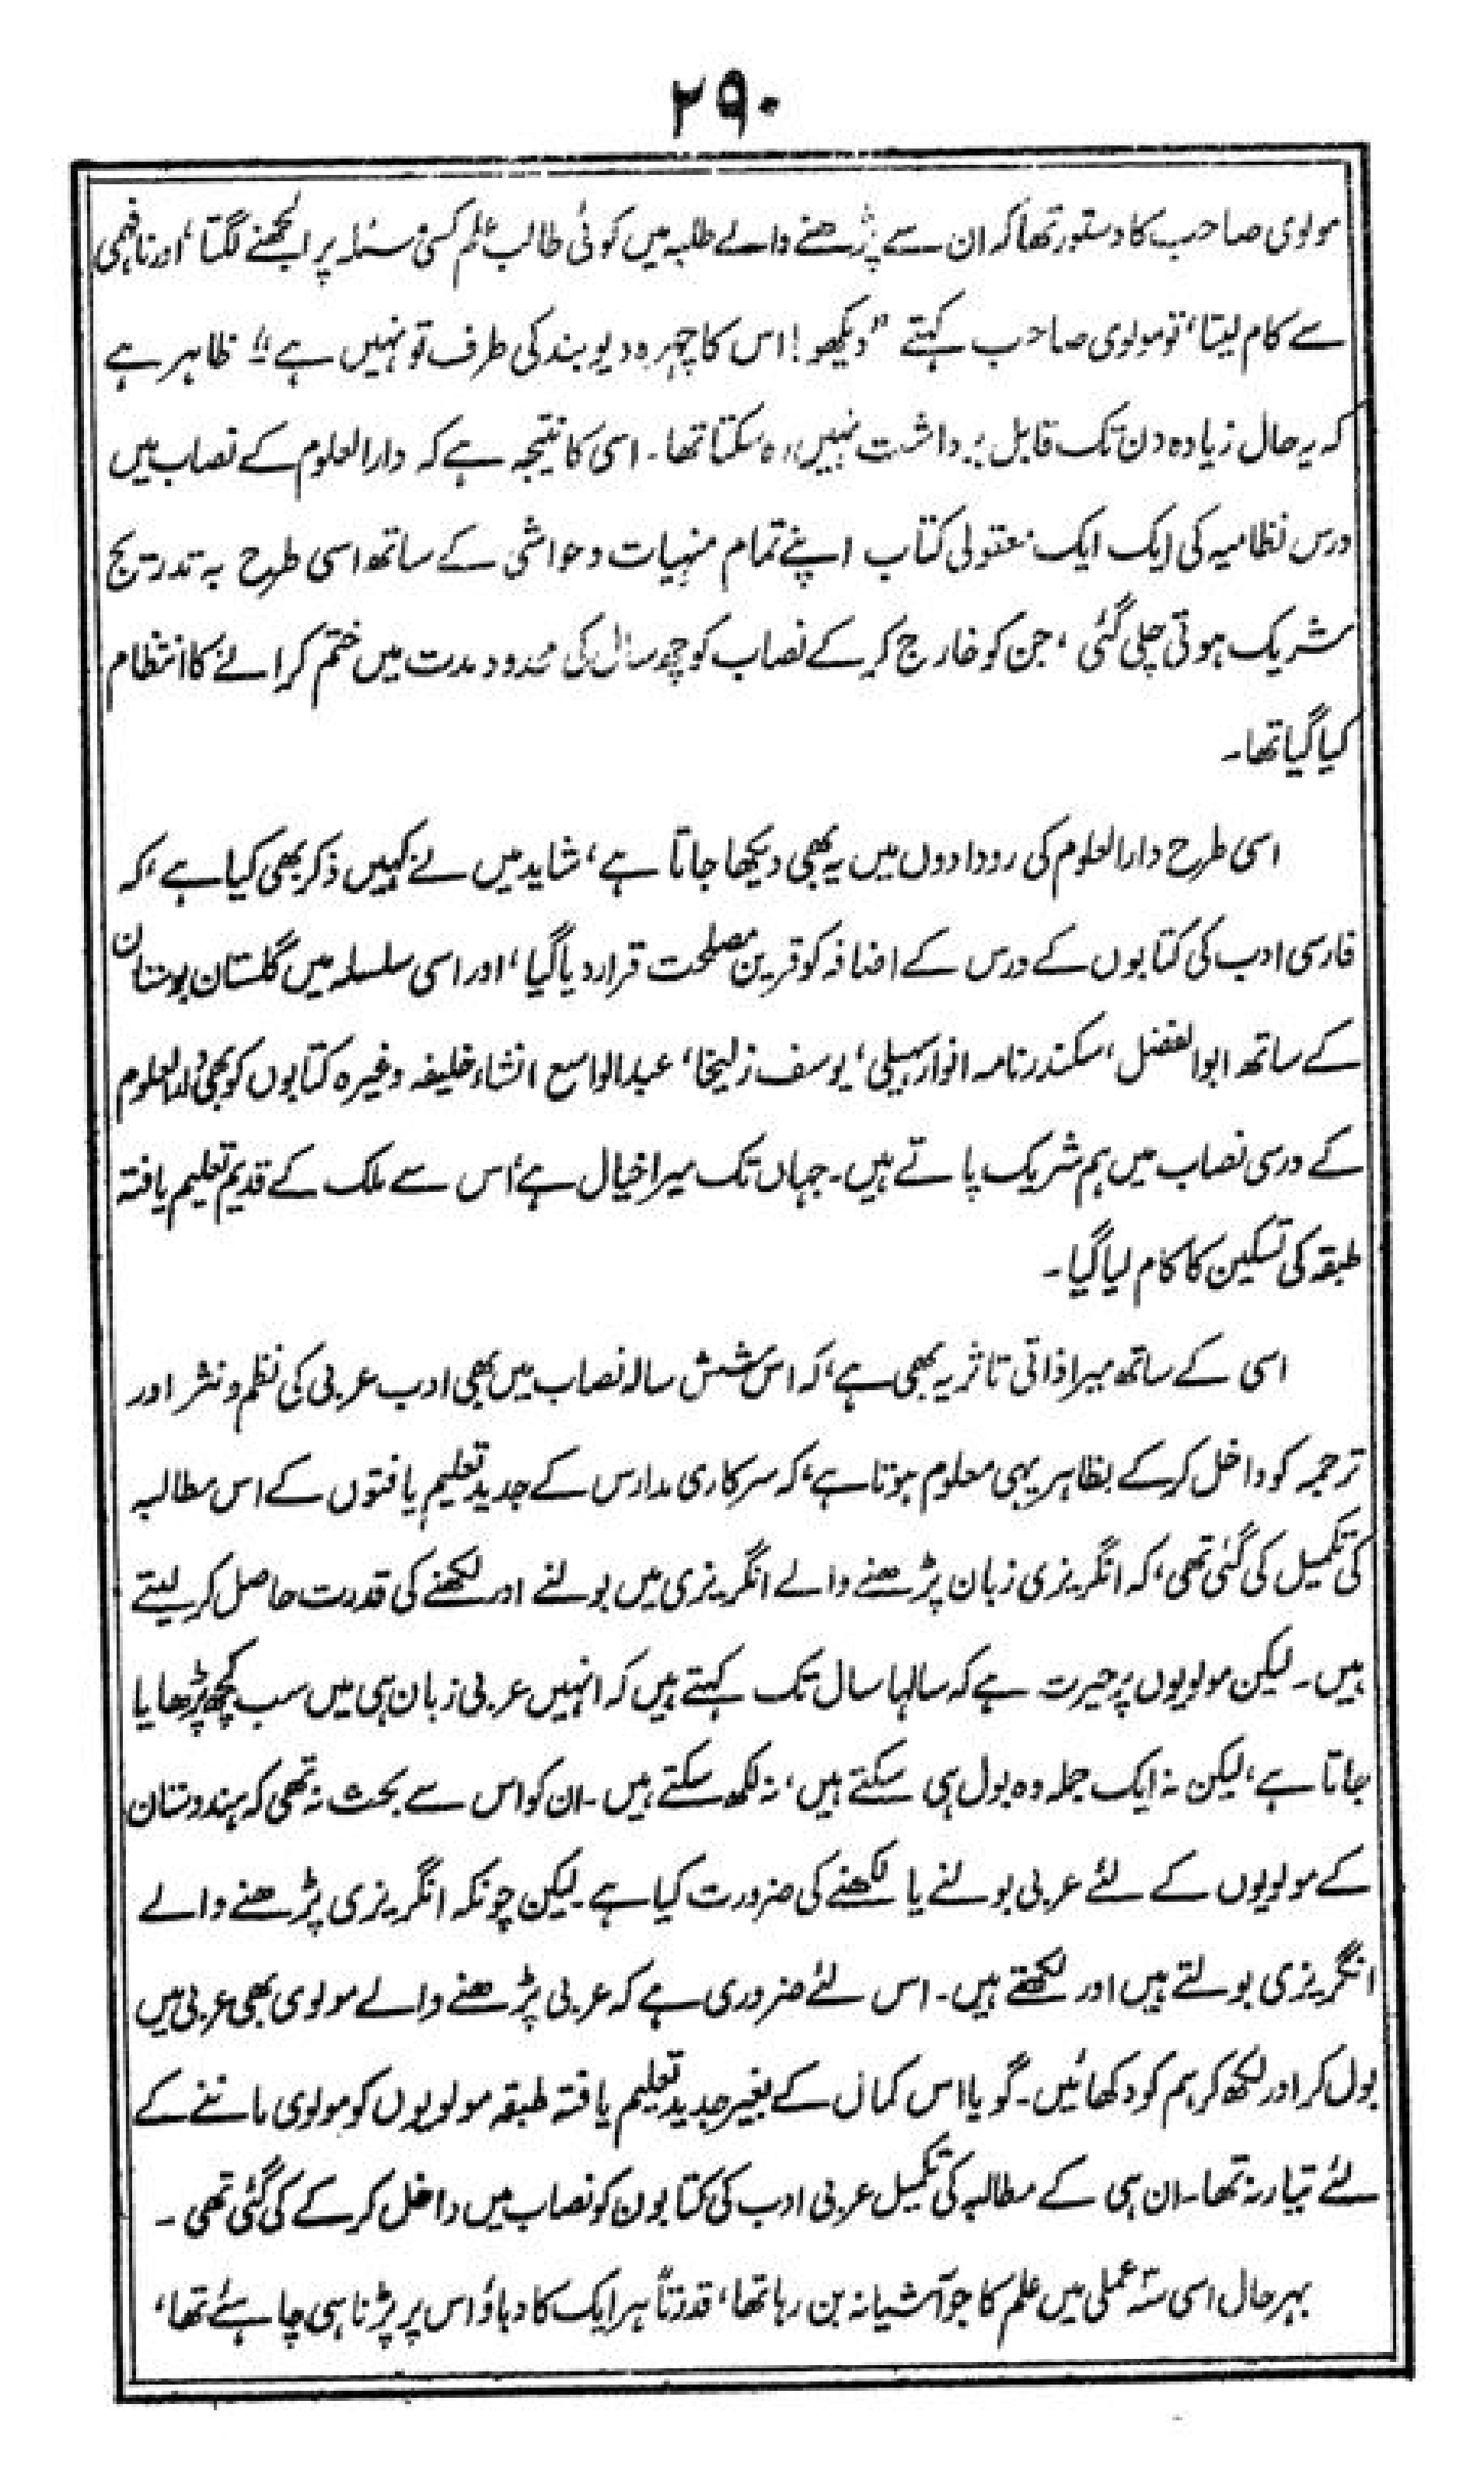 ۲۹۰
مولوی صاحب کا دستور تھا کہ ان سے پڑھنے والے طلبہ میں کوئی طالب علم کسی مسئلہ پر الجھنے لگتا، اور نافہمی
سے کام لیتا، تو مولوی صاحب کہتے "دیکھو! اس کا چہرہ دیوبند کی طرف تو نہیں ہے" ظاہر ہے
کہ یہ حال زیادہ دن تک قابل برداشت نہیں رہ سکتا تھا۔ اسی کا نتیجہ ہے کہ دارالعلوم کے نصاب میں
درس نظامیہ کی ایک ایک معقولی کتاب اپنے تمام منہیات و حواشی کے ساتھ اسی طرح بہ تدریج
شریک ہوتی چلی گئی، جن کو خارج کر کے نصاب کو چھ سال کی محدود مدت میں ختم کرانے کا انتظام
کیا گیا تھا۔
اسی طرح دارالعلوم کی رودادوں میں یہ بھی دیکھا جاتا ہے، شاید میں نے کہیں ذکر بھی کیا ہے، کہ
فارسی ادب کی کتابوں کے درس کے اضافہ کو قرین مصلحت قرار دیا گیا، اور اسی سلسلہ میں گلستان بوستان
کے ساتھ ابوالفضل، سکندر نامہ انوار سہیلی، یوسف زلیخا، عبدالواسع انشاء خلیفہ وغیرہ کتابوں کو بھی دارالعلوم
کے درسی نصاب میں ہم شریک پاتے ہیں۔ جہاں تک میرا خیال ہے، اس سے ملک کے قدیم تعلیم یافتہ
طبقہ کی تسکین کا کام لیا گیا۔
اسی کے ساتھ میرا ذاتی تاثر یہ بھی ہے، کہ اس شش سالہ نصاب میں بھی ادب عربی کی نظم و نثر اور
ترجمہ کو داخل کر کے بظاہر یہی معلوم ہوتا ہے، کہ سرکاری مدارس کے جدید تعلیم یافتوں کے اس مطالبہ
کی تکمیل کی گئی تھی، کہ انگریزی زبان پڑھنے والے انگریزی میں بولنے اور لکھنے کی قدرت حاصل کر لیتے
ہیں۔ لیکن مولویوں پر حیرت ہے کہ سالہا سال تک کہتے ہیں کہ انہیں عربی زبان ہی میں سب کچھ پڑھایا
جاتا ہے، لیکن نہ ایک جملہ وہ بول ہی سکتے ہیں، نہ لکھ سکتے ہیں۔ ان کو اس سے بحث نہ تھی کہ ہندوستان
کے مولویوں کے لئے عربی بولنے یا لکھنے کی ضرورت کیا ہے۔ لیکن چونکہ انگریزی پڑھنے والے
انگریزی بولتے ہیں اور لکھتے ہیں۔ اس لئے ضروری ہے کہ عربی پڑھنے والے مولوی بھی عربی میں
بول کر اور لکھ کر ہم کو دکھائیں۔ گویا اس کمال کے بغیر جدید تعلیم یافتہ طبقہ مولویوں کو مولوی ماننے کے
لئے تیار نہ تھا۔ ان ہی کے مطالبہ کی تکمیل عربی ادب کی کتابوں کو نصاب میں داخل کر کے کی گئی تھی۔
بہرحال اسی ستہ عملی میں علم کا جو آشیانہ بن رہا تھا، قدرتاً ہر ایک کا دباؤ اس پر پڑنا ہی چاہئے تھا،